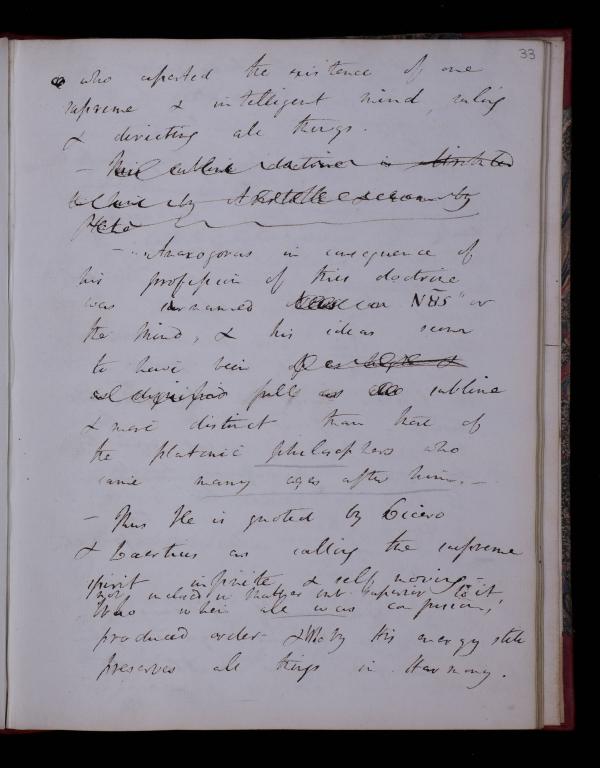 33
who asserted the existence of one
supreme & intelligent mind, ruling
& directing all things.
- This sublime doctrine is attributed
by Aristotle & Cicero by
Plato
- Anaxogoras in consequence of
his profession of this doctrine
was surnamed ΝΟΥΣ" or
the Mind, & his ideas seem
to have been
& dignified full as sublime
& more distinct than those of
the platonic philosophers who
came many ages after him. -
- Thus He is quoted by Cicero
& Laertius as calling the supreme
spirit infinite & self moving -
not inclosed in matter but superior to it
Who when all was confusion,
produced order & Who by His energy still
preserves all things in Harmony.